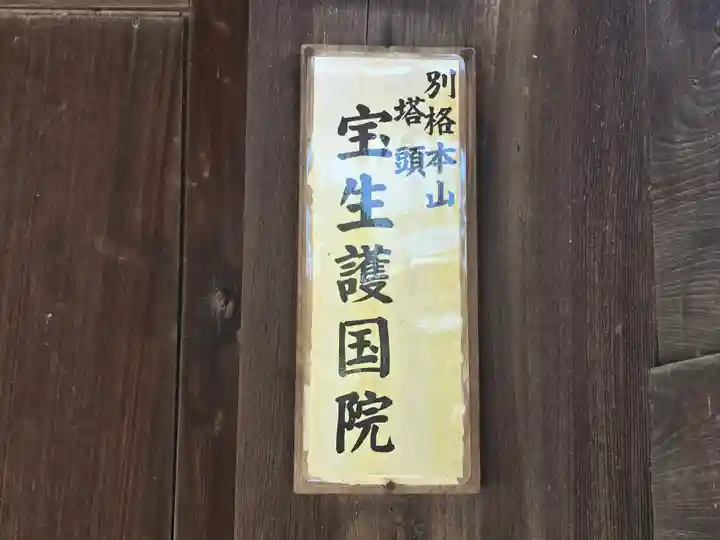 別格本山
塔頭
宝生護国院